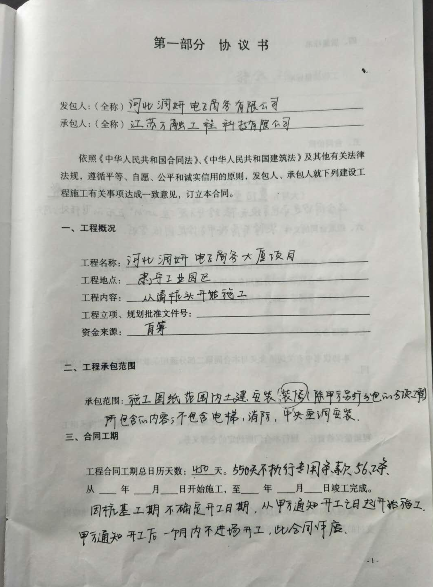 第一部分 协议书
发包人:(全称) 河北润妍电子商务有限公司
承包人:(全称) 江苏方融工程科技有限公司
依照《中华人民共和国合同法》、《中华人民共和国建筑法》及其他有关法律
法规,遵循平等、自愿、公平和诚实信用的原则,发包人、承包人就下列建设工
程施工有关事项达成一致意见,订立本合同。
一、工程概况
工程名称: 河北润妍电子商务大厦项目
工程地点: 工业园区
工程内容: 从清桩头开始施工
工程立项、规划批准文件号:
资金来源: 自筹
二、工程承包范围
承包范围: 施工图纸范围内土建安装(装修)除甲方另行分包的
所包含的内容;不包含电梯,消防,中央空调安装.
三、合同工期
工程合同工期总日历天数: 450 天。 550天不执行专用条款56.2条.
从 年 月 日开始施工,至 年 月 日竣工完成。
因坑基工期不确定开工日期,从甲方通知开工之日起开始施工.
甲方通知开工后一个月内不进场开工,此合同作废.
-1-